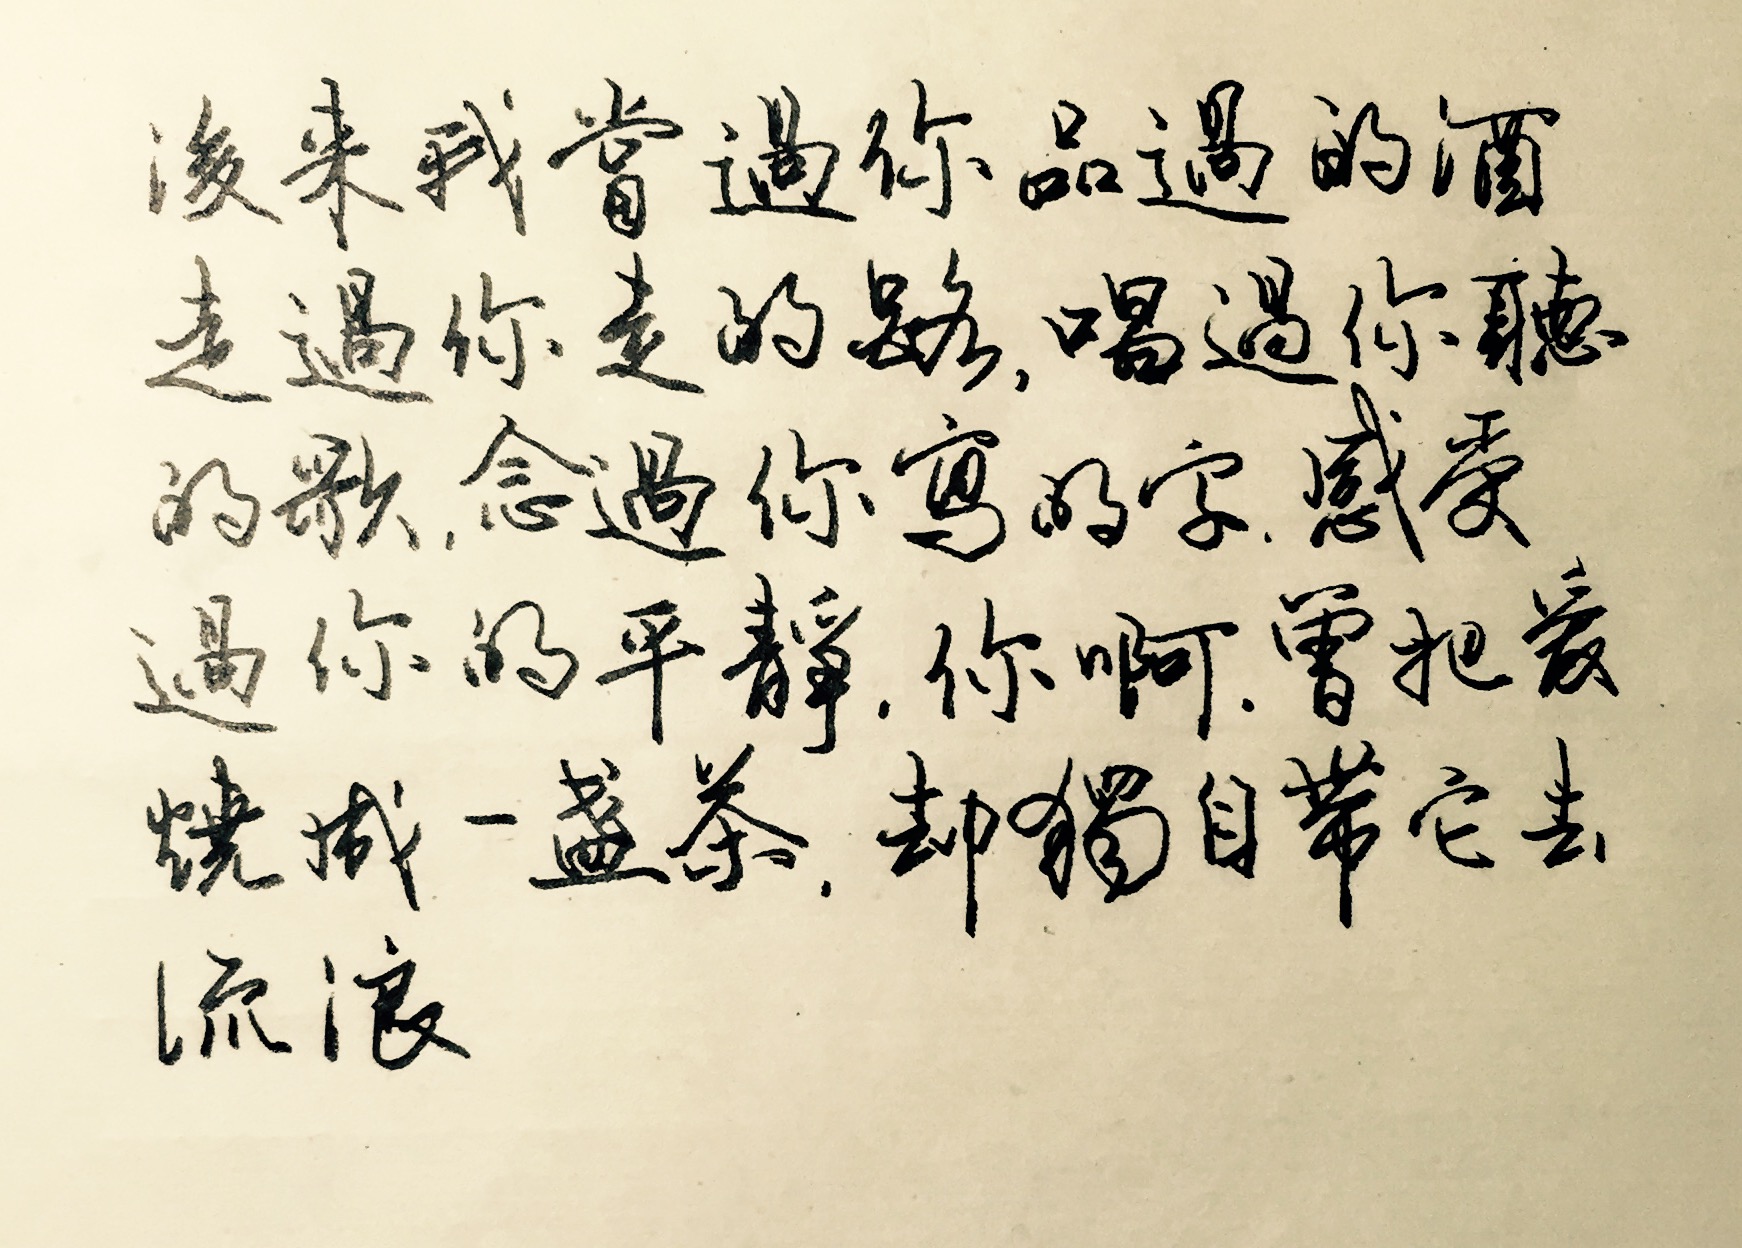 後来我當過你品過的酒
走過你走的路,唱過你聽
的歌,念過你寫的字,感受
過你的平靜,你啊,曾把愛
燒成一盞茶,却獨自帶它去
流浪